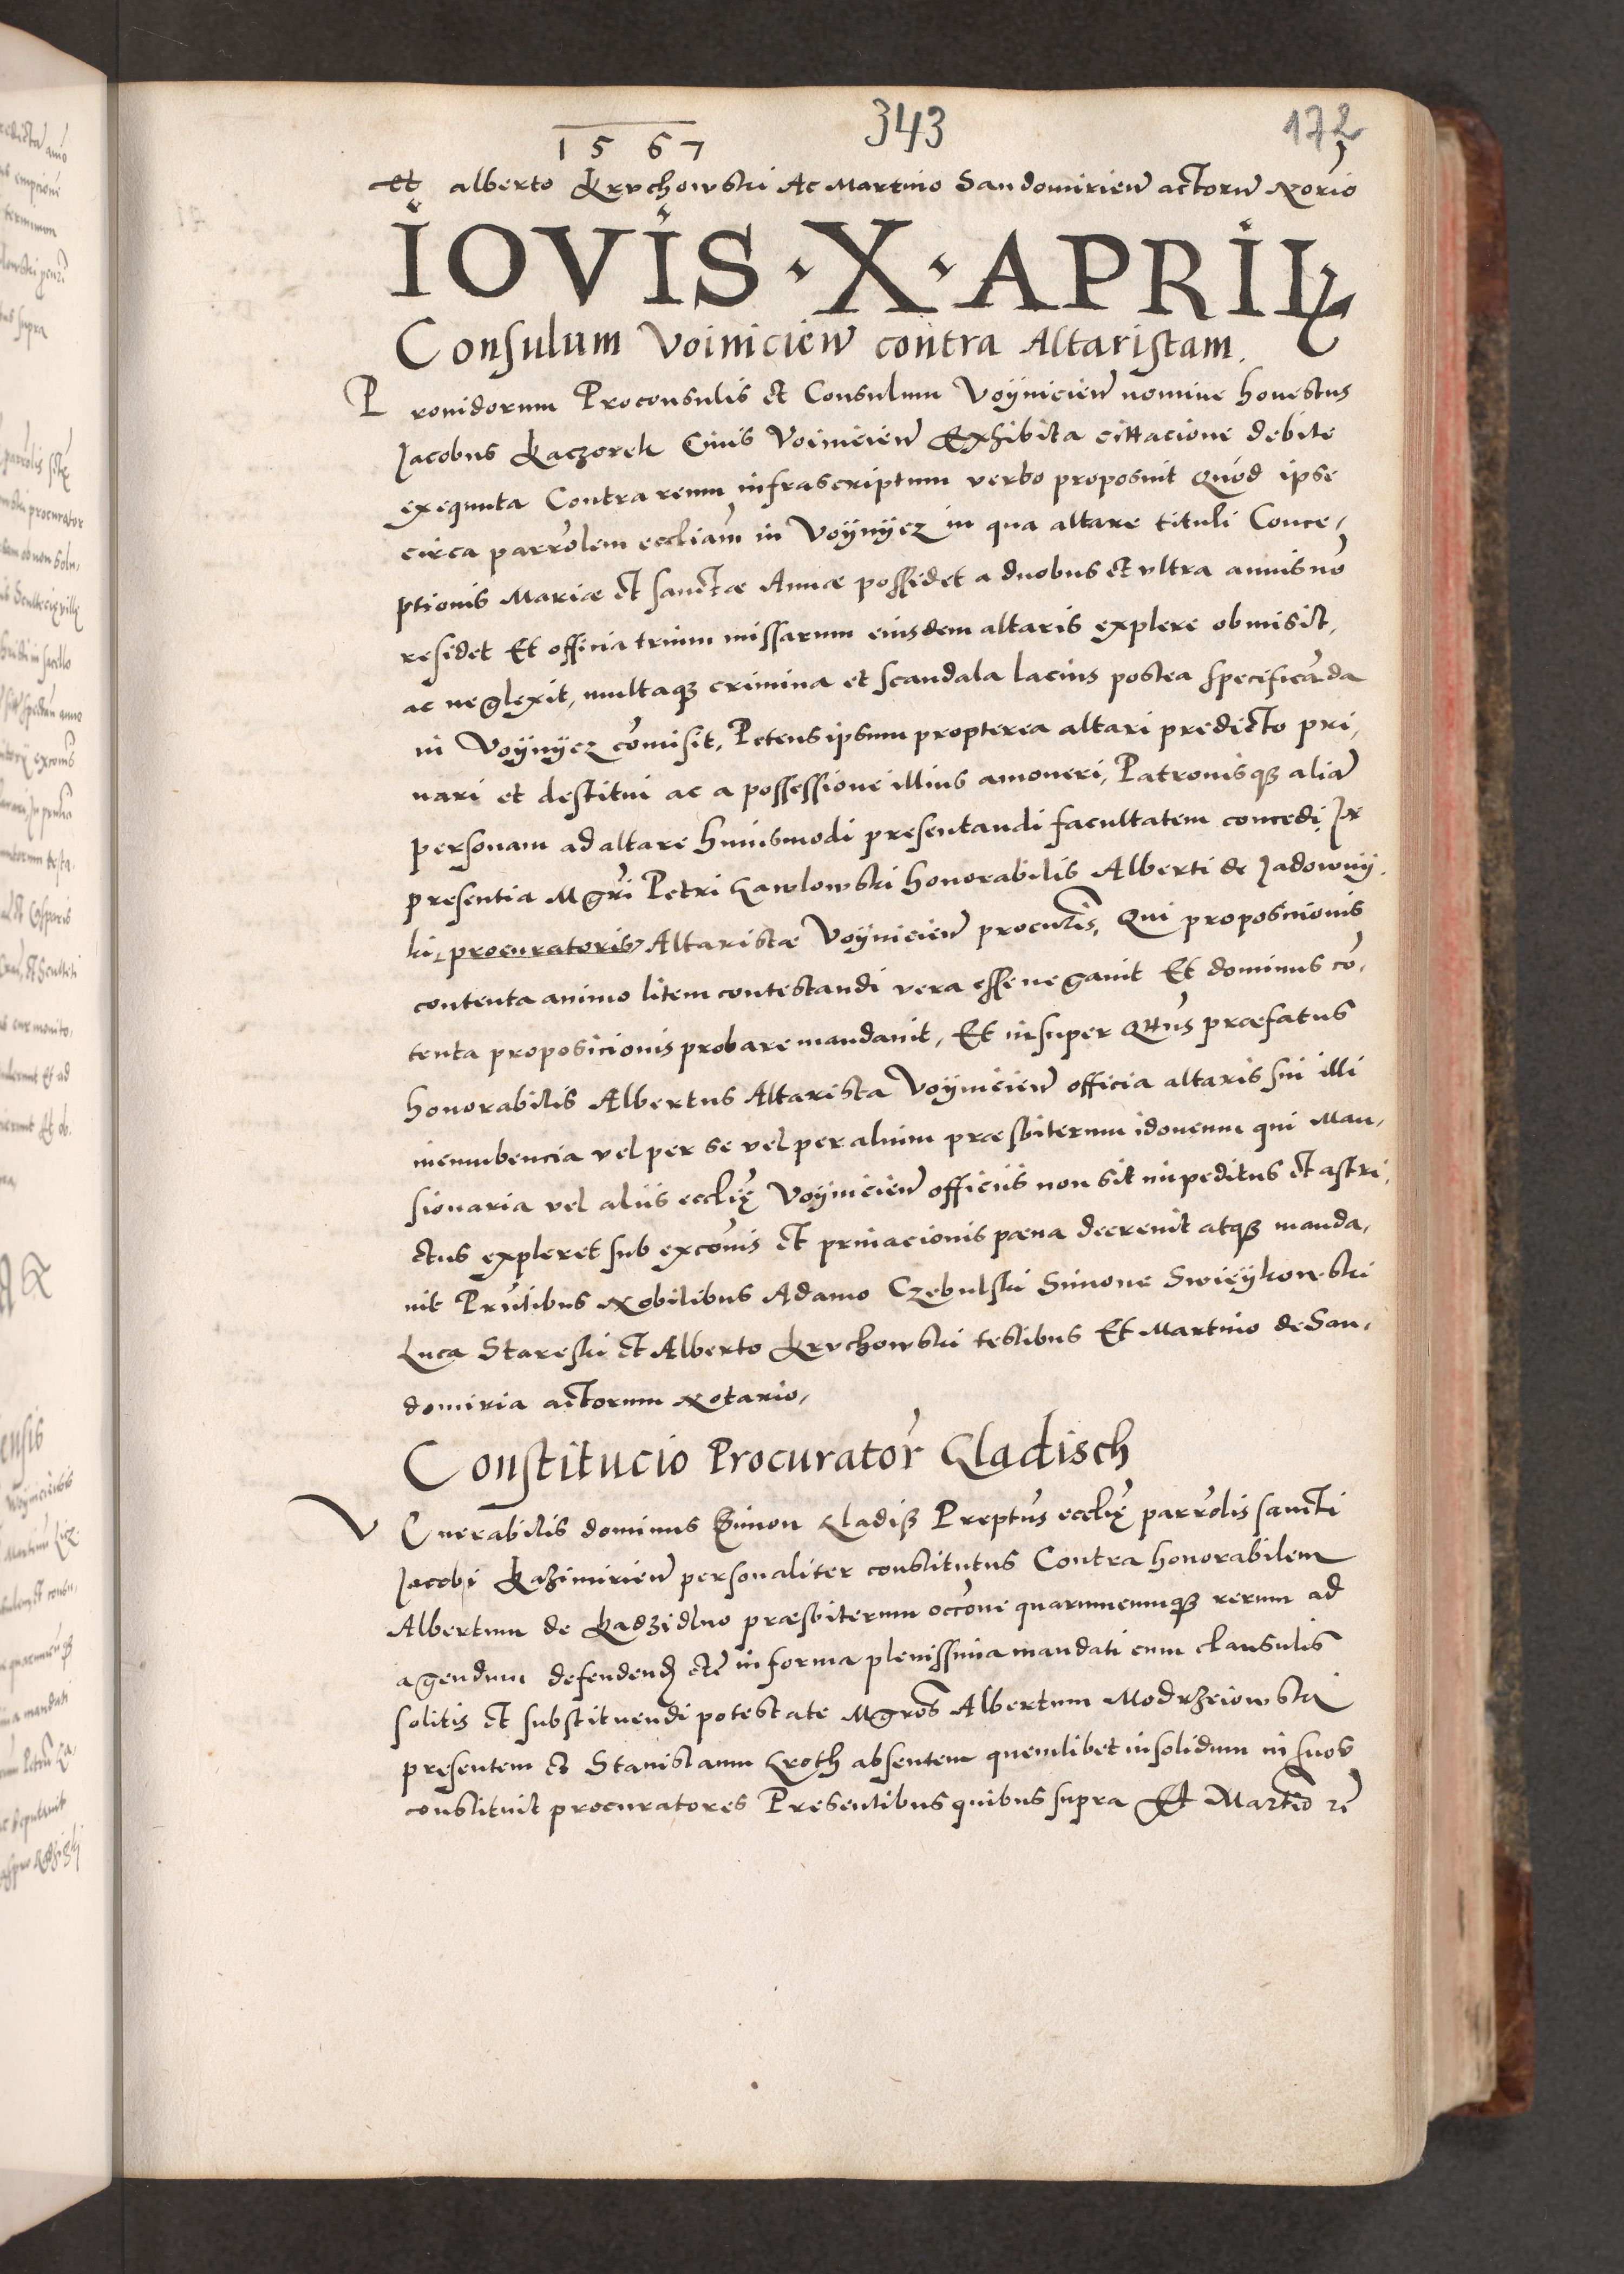 343
172
1567
et alberto Krvchowski Ac Martino Sandomirien actorũ Norio
IOVIS · X · APRIL
Consulum Voinicień contra Altaristam.
Prouidorum Proconsulis et Consulum Voÿnicień nomine honestus
Jacobus Kaczorek Ciuis Voinicień Exhibita cittacione debite
exequuta Contra reum infrascriptum verbo proposuit Quod ipse
circa parrolem eccliam in Voÿnÿcz in qua altare tituli Conce,
ptionis Mariæ et sanctæ Annæ possidet a duobus et vltra annis nõ
residet Et officia trium missarum eiusdem altaris explere obmisit,
ac neglexit, multaqz crimina et scandala lacius postea specificãda
in Voÿnÿcz cõmisit, Petens ipsum propterea altari predicto pri,
uari et destitui ac a possessione illius amoueri, Patronisqz aliã
personam ad altare huiusmodi presentandi facultatem concedi, In
presentia Mgri Petri Gawlowski honorabilis Alberti de Jadownÿ
ki procuratoris Altaristæ Voÿnicień procutis, Qui proposicionis
contenta animo litem contestandi vera esse negauit Et dominus cõ,
tenta proposicionis probare mandauit, Et insuper Qttus præfatus
honorabilis Albertus Altarista Voÿnicień officia altaris sui illi
incumbencia vel per se vel per alium præsbiterum idoneum qui Man,
sionaria vel aliis ecclię Voÿnicień officiis non sit impeditus et astri,
ctus expleret sub excõis et priuacionis pæna decreuit atqz manda,
uit Prñtibus Nobilibus Adamo Czebulski Simone Swieÿkowski
Luca Stareski et Alberto Krvchowski testibus Et Martino de San,
domiria actorum Notario,
Constitucio Procurator Gladisch
Venerabilis dominus Simon Gladisz Preptus ecclię parrolis sancti
Jacobi Kazimirień personaliter constitutus Contra honorabilem
Albertum de Kadzidlno præsbiterum occõne quarumcumqz rerum ad
agendum defendend etc in forma plenissima mandati cum clausulis
solitis et substituendi potestate Mgros Albertum Modrzeiowski
presentem et Stanislaum Groth absentem quemlibet insolidum in suos
constituit procuratores Presentibus quibus supra Et Martino